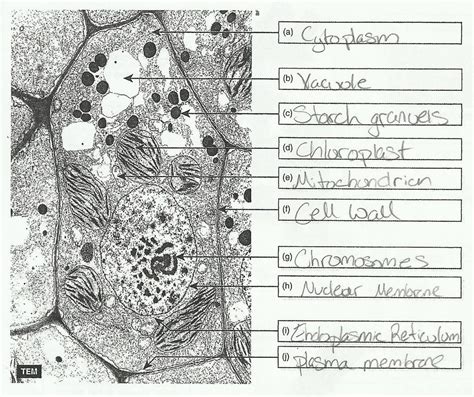 (a) Cytoplasm
(b) Vacuole
(c) Starch granuels
(d) Chloroplast
(e) Mitochondrion
(f) Cell wall
(g) Chromosomes
(h) Nuclear Membrane
(i) Endoplasmic Reticulum
(j) plasma membrane
TEM